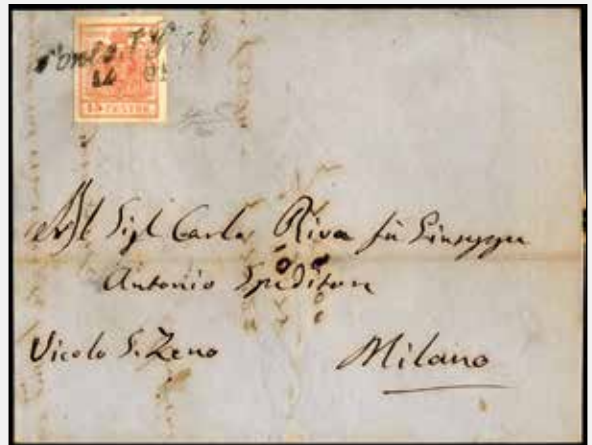 14
15 CENTES
Sigl Carlo Riva fù Giuseppe
Antonio Speditore
Vicolo S. Zeno
Milano